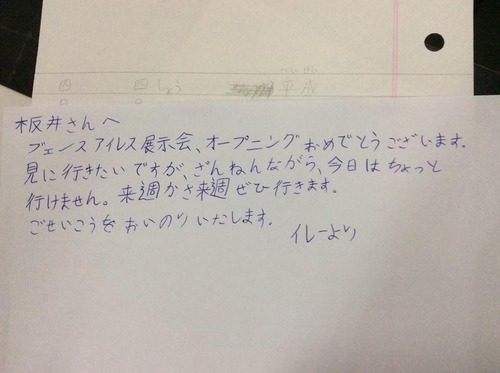 四 四しょう へいせい 平成
板井さんへ
ブェンスアイレス展示会、オープニングおめでとうございます。
見に行きたいですが、ざんねんながら、今日はちょっと
行けません。来週かさ来週ぜひ行きます。
ごせいこうをおいのりいたします。
イレーより